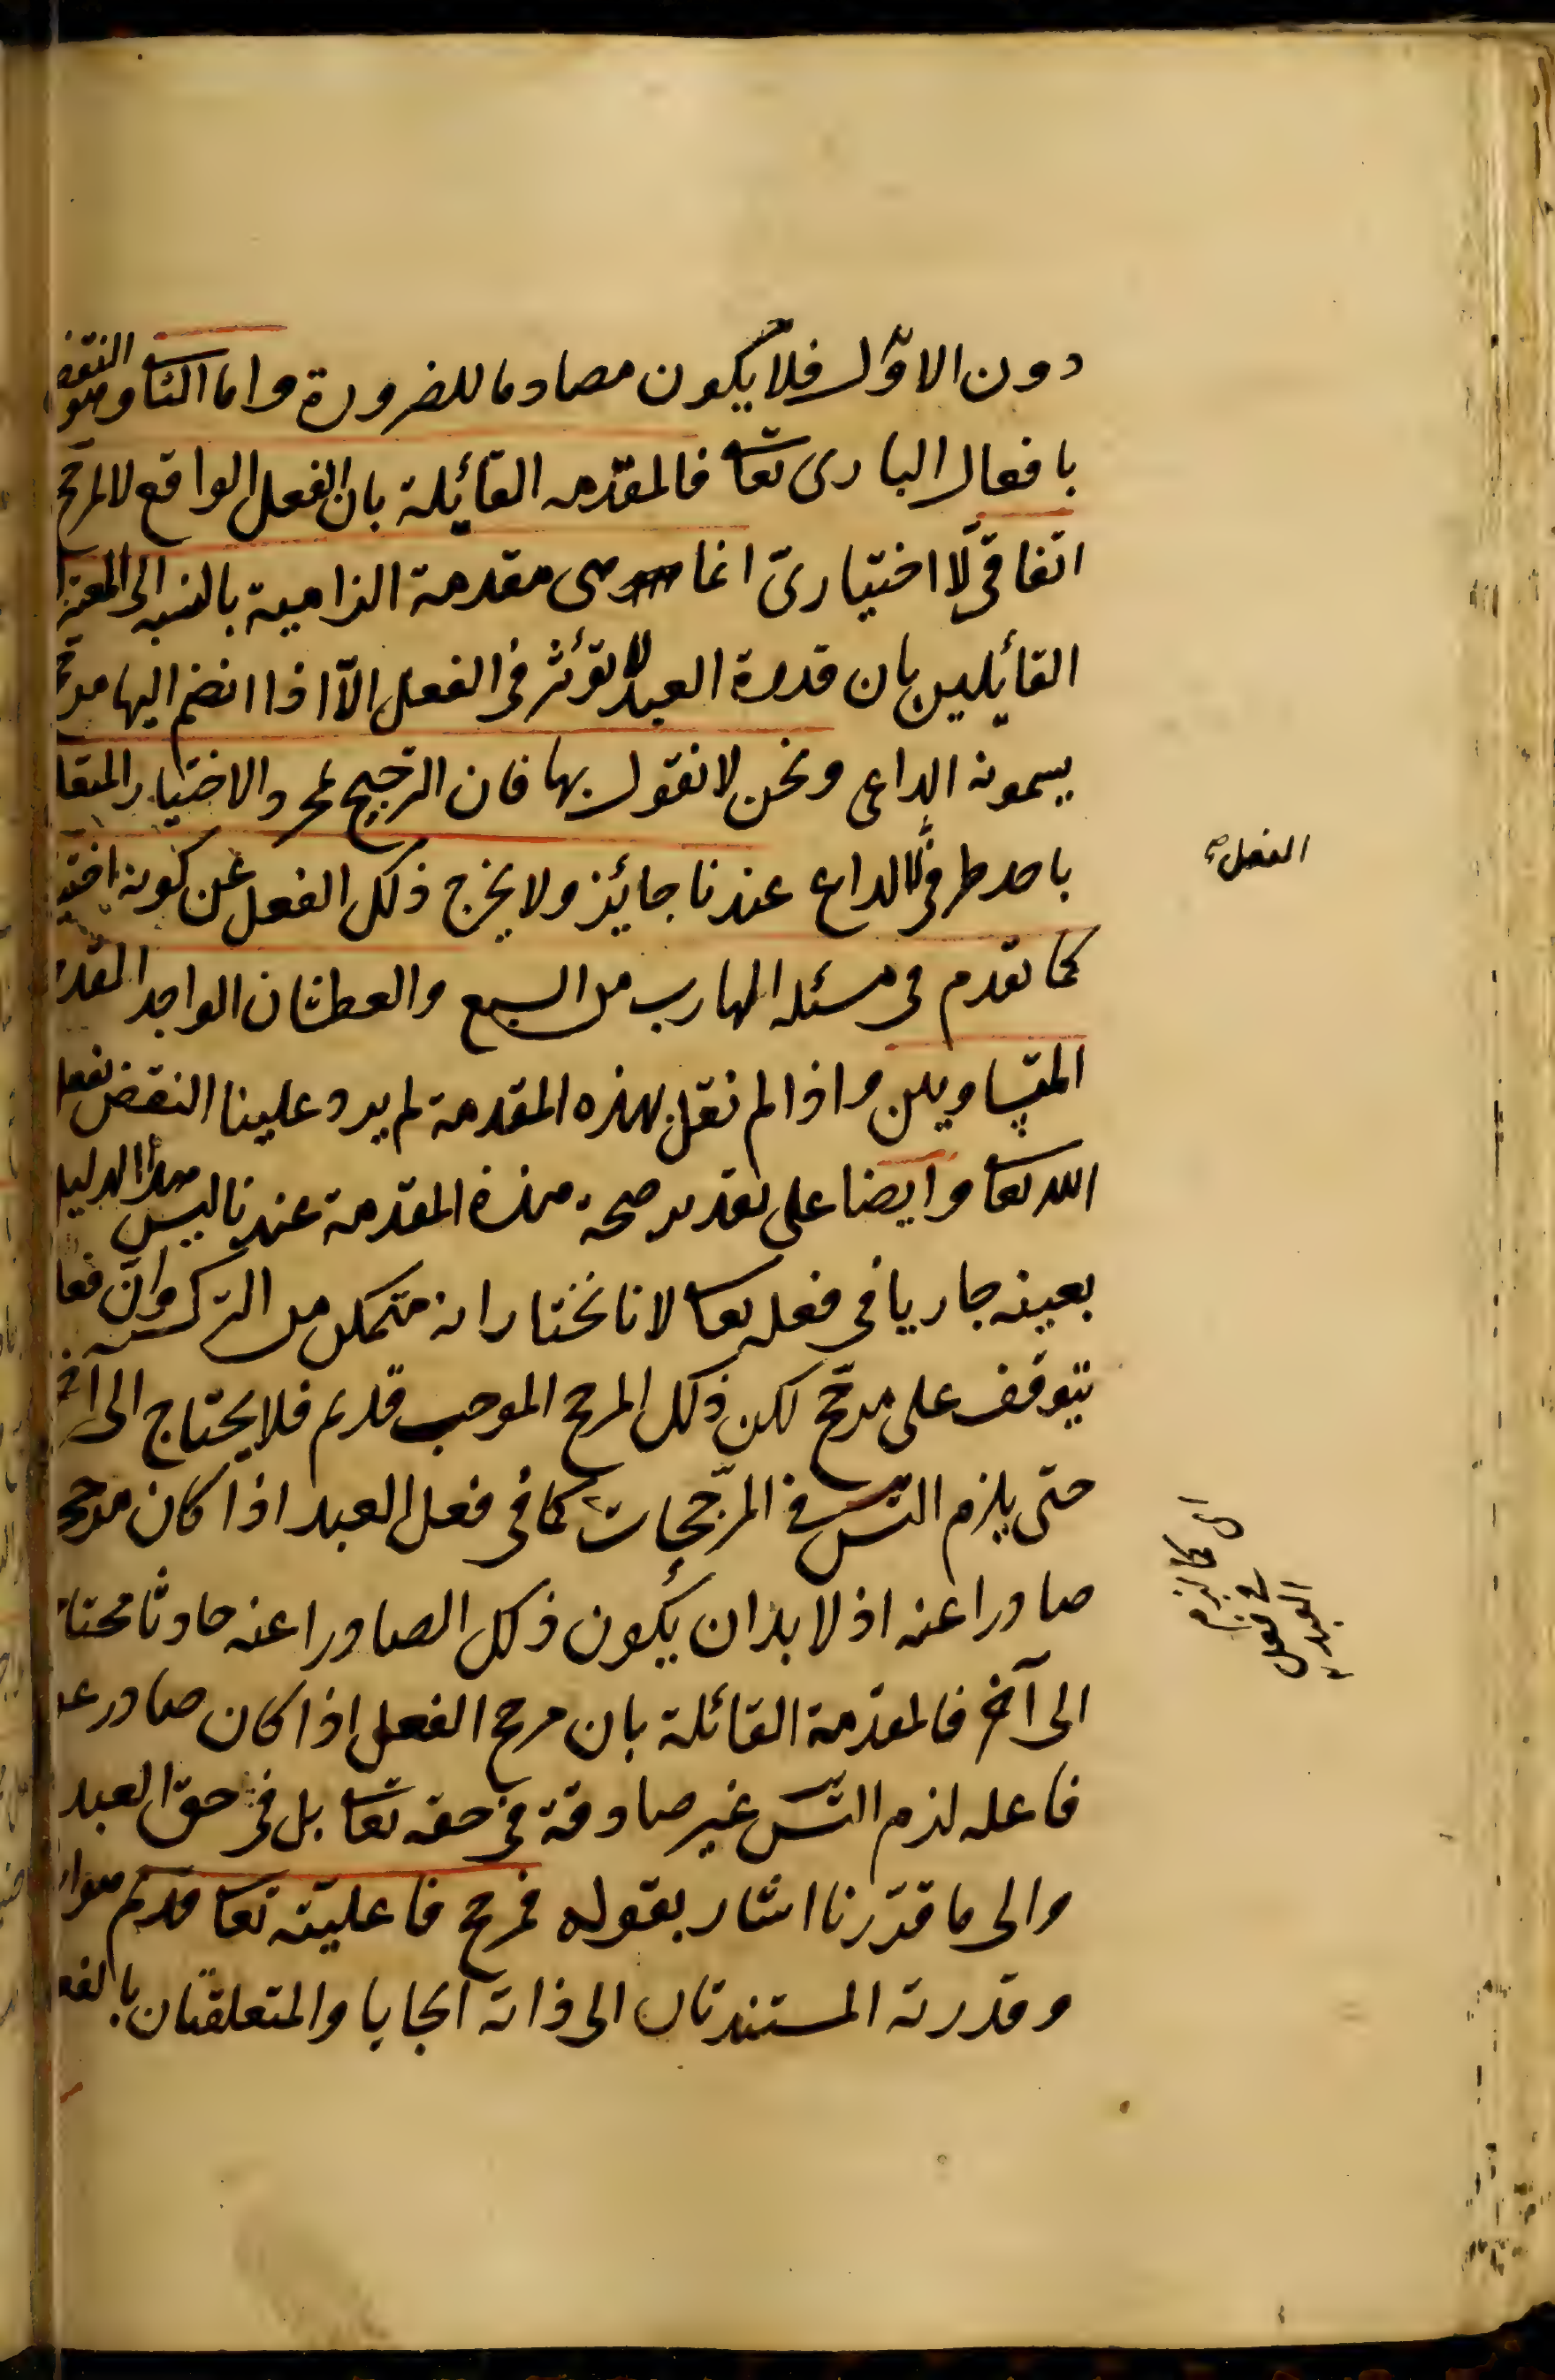 دون الاوّل فلا يكون مصادما للضرورة واما الثانى وهو النقض
بافعال البارى تعا فالمقدّمه القائيلة بان الفعل الواقع لالمرجح
اتفاقىّ لا اختيارىّ انما هى مقدمة الزامية بالنسبه الى المعتز
القائيلين بان قدرة العبد لا تؤثر فى الفعل الاّ اذا انضم اليها مرجح
يسمونه الداعى ونحن لا نقول بها فان الترجيح بمجرد الاختيار المتعلق
باحد طرفى لا لداع عندنا جائيز ولا يخرج ذلك الفعل عن كونه اختيا
كما تقدم فى مسئله الهارب من السبع والعطشان الواجد القد
المتساويين واذا لم نقل بهذه المقدمة لم يرد علينا النقض بفعل
الله تعا وايضا على تقدير صحة هذه المقدمة عندنا ليس هذا الدليل
بعينه جاريا فى فعله تعا لانا نختار انه متمكن من الترك وان فعله
يتوقف على مرجّح لكن ذلك المرجح الموجب قديم فلا يحتاج الى آخر
حتى يلزم التس فى المرجّحات كما فى فعل العبد اذا كان مرجحه
صادرا عنه اذ لا بد ان يكون ذلك الصادر عنه حادثا محتاجا
الى آخر فالمقدّمة القائلة بان مرجح الفعل اذا كان صادر عن
فاعله لزم التس غير صادقة فى حقه تعا بل فى حق العبد
والى ما قرّرنا اشار بقوله فمرجح فاعليّته تعا قديم هو ارا
وقدرته المستندتان الى ذاته ايجابا والمتعلقتان بالفعل
الفعل صح
اى كما لزم
فى فعل
العبد